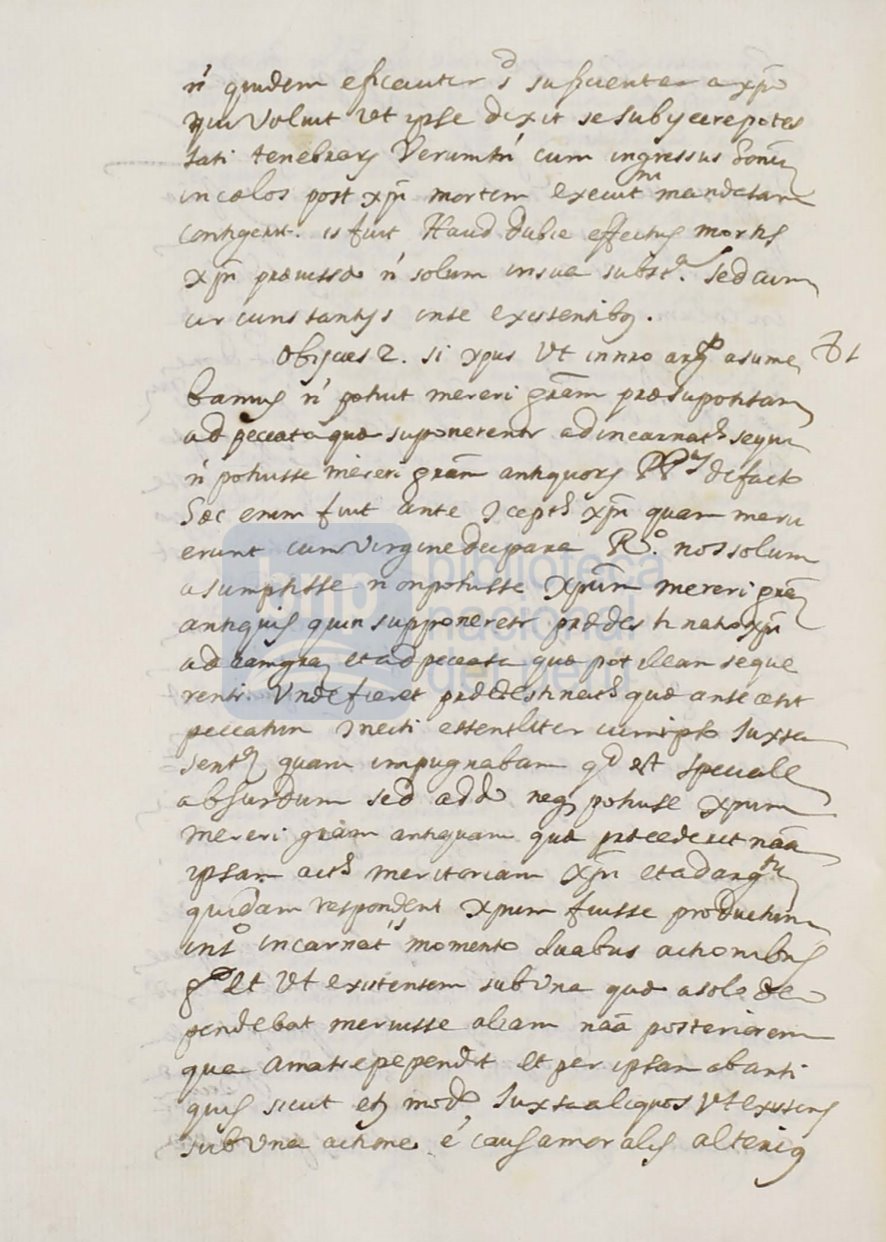 n' quidem eficaciter sᵈ suficienter a xp̄o
qui voluit ut ipse dixit se subycere potes
tati tenebrarũ Verumtn' cum ingressus
in cœlos post xp̄i mortem mandatam
contigerit. is fuit Haud dubie effectus mortis
xp̄i prævissæ n' solum in sua subst.ª sed cum
circunstantijs in se existentibꝫ.
Obijcies 2. si xpus ut in nr̃o argᵒ asume
bamus n' potuit mereri grãm præsupositam
ad peccata quæ suponerentr ad incarnatˢ sequi
n' potuisse mereri grãm antiquorũ PPᵐ de facto
Hæc enim fuit ante xp̄i quam meru
erunt cum Virgine deipara R.º nos solum
asumpsisse non potuisse xpũm mereri grãm
antiquis quin supponeretr prædestinatio xp̄i
ad eam grãm et ad peccata quæ post illam seque
rentr. Unde fieret quæ ante
peccatum essentiliter cum ipso Iuxta
sentˢ quam impugnabam qᵈ est speciale
absurdum sed addo neqꝫ potuisse xpum
mereri grãm antiquam quæ præcederet nãa
ipsam actˢ meritoriam xp̄i et ad argᵗᵘ
quidam respondent xpum fuisse productum
in iº incarnatˢ momento duabus actionibus
et ut existensem sub una quæ a solo de
pendebat meruisse aliam nãa posteriorem
quæ a matre pependit et per ipsam ab anti
quis sicut etꝫ modo Iuxta aliquos ut existens
sub una actione é causa moralis alterius
biblioteca
nacional
del perú